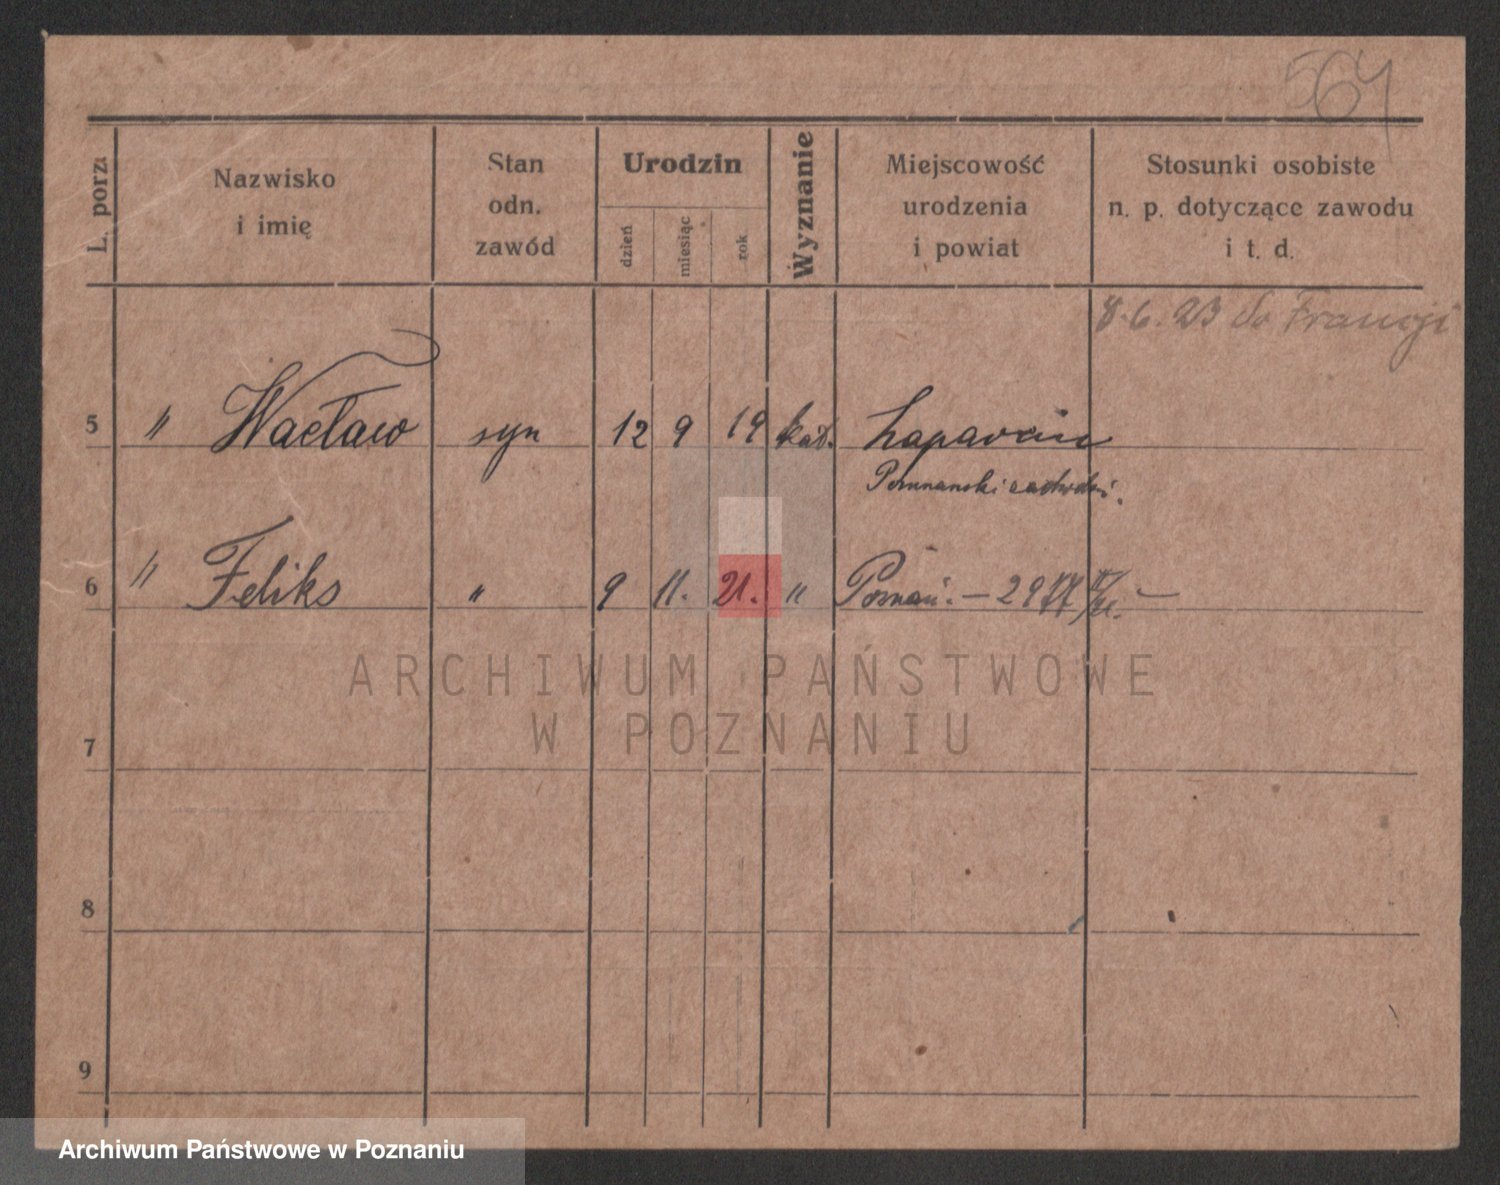 564
L. porz.
Nazwisko
i imię
Stan
odn.
zawód
Urodzin
dzień
miesiąc
rok
Wyznanie
Miejscowość
urodzenia
i powiat
Stosunki osobiste
n. p. dotyczące zawodu
i t. d.
8.6.23 do Francji
5 " Wacław syn 12 9 19 kat.
6 " Feliks " 9 11. 21. " Poznań. — 29
ARCHIWUM PAŃSTWOWE
W POZNANIU
7
8
9
Archiwum Państwowe w Poznaniu